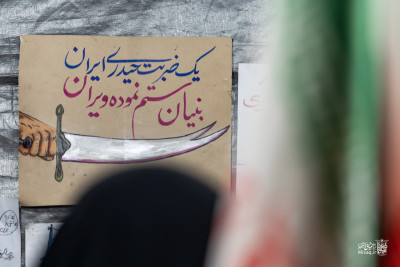 یک ضربت حیدری ایران
بنیان ستم نموده ویران